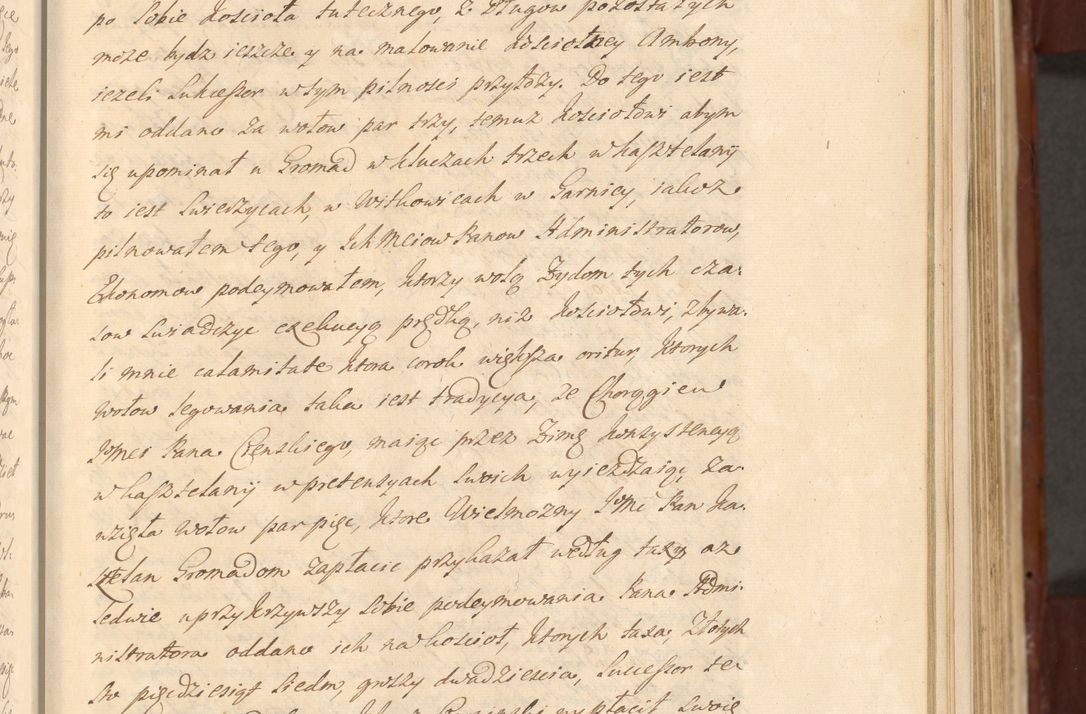 po sobie Kościoła tutecznego, z długow pozostałych
może bydź ieszcze y na malowanie Kościelney Ambony,
ieżeli Sukcessor w tym pilności przyłoży. Do tego iest
mi oddano za wołow par trzy, temuż Kościołowi abym
się upominał u Gromad w kluczach trzech w kasztelanij
to iest Swierzycach, w Witkowicach w Garnicy, iakoż
pilnowałem tego, y IchMciow Panow Administratorow,
Ekonomow podeymowałem, ktorzy wolą Zydom tych cza:
sow swiadczyć exekucyą prędką, niż Kościołowi, zbywa:
li mnie calamitate ktora coroк większa oritur, ktorych
wołow tegowania taka iest tradycya, że Chorągiew
JMci Pana Czenskiego, maiąc przez Zimę konsystencyą
w kasztelanij w pretensyach swoich wyieżdżaiąc za:
wzięła wołow par pięć, ktore Wielmożny JMć Pan Ka:
sztelan Gromadom zapłacić przykazał według taxy aż
ledwie uprzykrzywszy sobie podeymowania Pana Admi:
nistratora oddano ich na kościoł, ktorych taxa Złotych
sto pięćdziesiąt siedm, groszy dwadzieścia, Sukcessor te:
wypłacił swoie